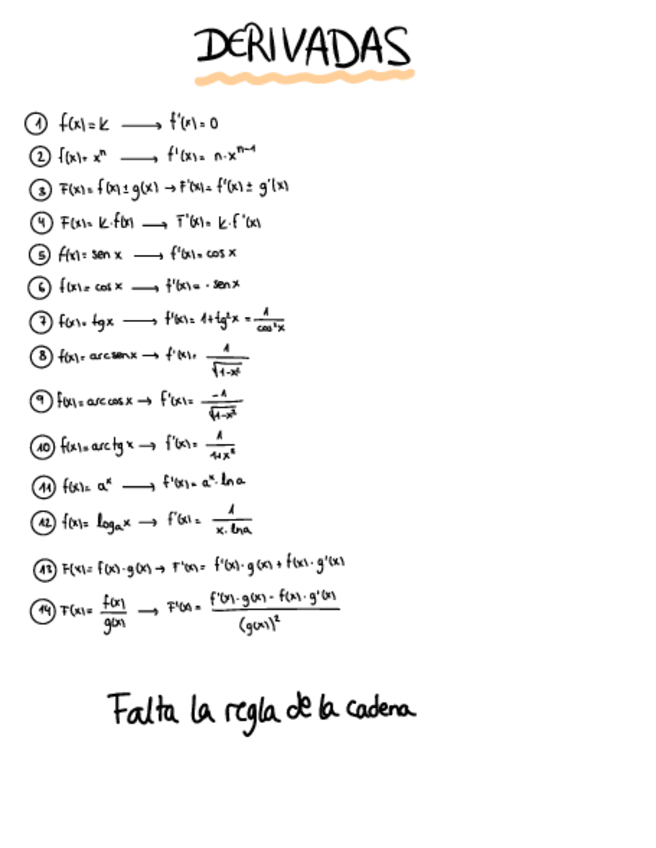 DERIVADAS
① f(x) = k ⟶ f'(x) = 0
② f(x) = xⁿ ⟶ f'(x) = n·xⁿ⁻¹
③ F(x) = f(x) ± g(x) → F'(x) = f'(x) ± g'(x)
④ F(x) = k·f(x) ⟶ F'(x) = k·f'(x)
⑤ f(x) = sen x ⟶ f'(x) = cos x
⑥ f(x) = cos x ⟶ f'(x) = - sen x
⑦ f(x) = tg x ⟶ f'(x) = 1 + tg²x = 1/cos²x
⑧ f(x) = arcsen x → f'(x) = 1/√(1-x²)
⑨ f(x) = arccos x → f'(x) = -1/√(1-x²)
⑩ f(x) = arctg x → f'(x) = 1/(1+x²)
⑪ f(x) = aˣ ⟶ f'(x) = aˣ·ln a
⑫ f(x) = logₐx → f'(x) = 1/(x·ln a)
⑬ F(x) = f(x)·g(x) → F'(x) = f'(x)·g(x) + f(x)·g'(x)
⑭ F(x) = f(x)/g(x) → F'(x) = (f'(x)·g(x) - f(x)·g'(x))/(g(x))²
Falta la regla de la cadena